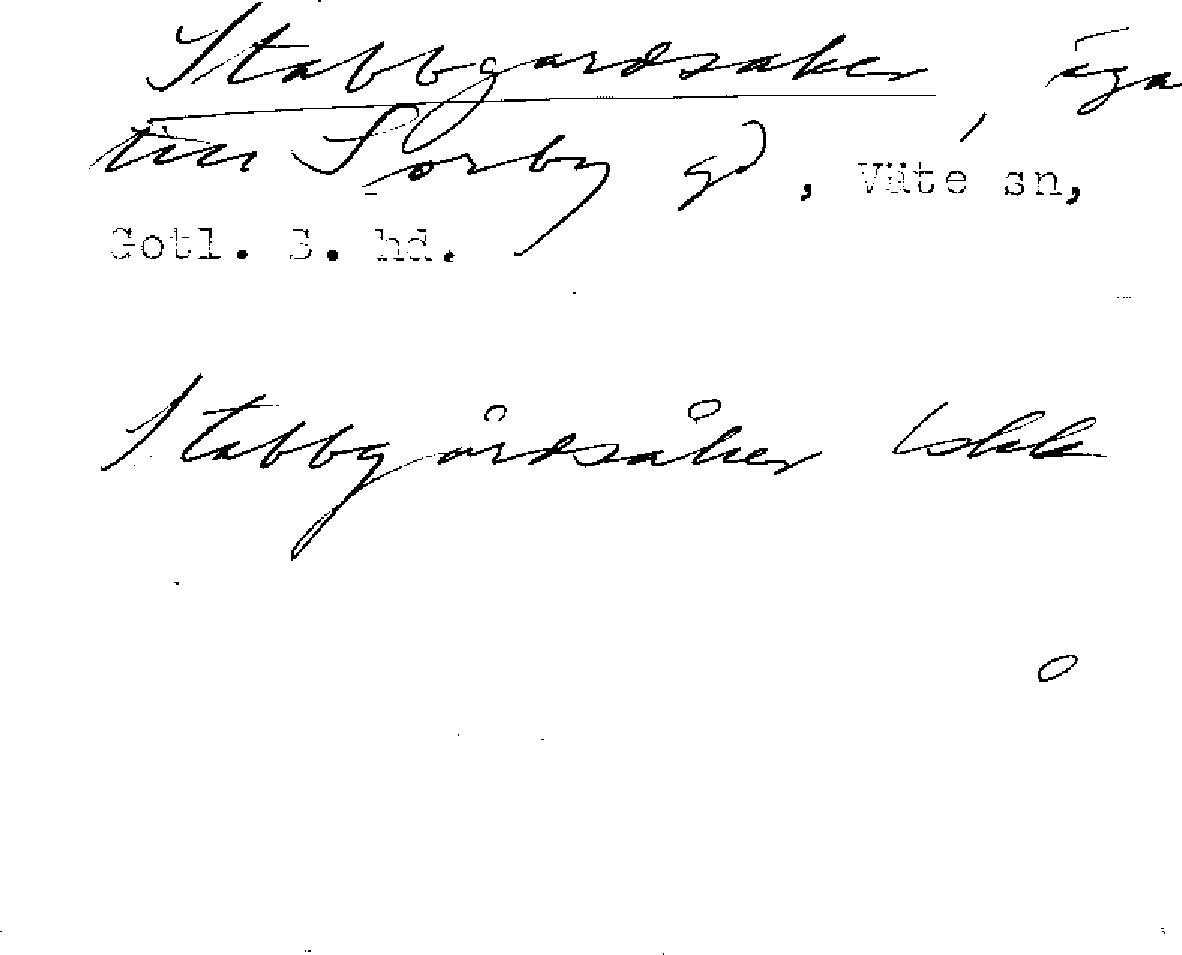 Stabbgardsaker, äga
till Sorby gd, Väte sn,
Gotl. S. hd.
Stabbgårdsåker Lskk